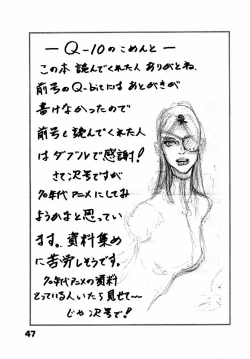 — Q-10のこめんと —
この本 読んでくれた人 ありがとね.
前号のQ-bitには あとがきが
書けなかったので
前号も読んでくれた人
はダブルで感謝!
さて次号ですが
70年代アニメにしてみ
ようかなと思ってい
ます。資料集め
に苦労しそうです.
70年代アニメの資料
とっている人いたら見せて〜
じゃ次号で!
47